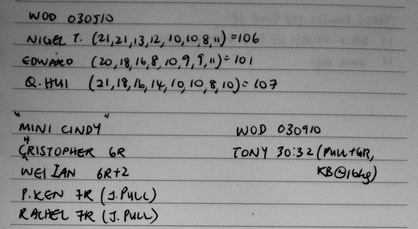 WOD 030510
NIGEL T. (21,21,13,12,10,10,8,11)=106
EDWARD (20,18,16,8,10,9,9,11)=101
Q.HUI (21,18,16,14,10,10,8,10)=107
"MINI CINDY"
CHRISTOPHER 6R
WEI IAN 6R+2
P.KEN 7R (J.PULL)
RACHEL 7R (J.PULL)
WOD 030910
TONY 30:32 (PULL+GR,
KB@16kg)